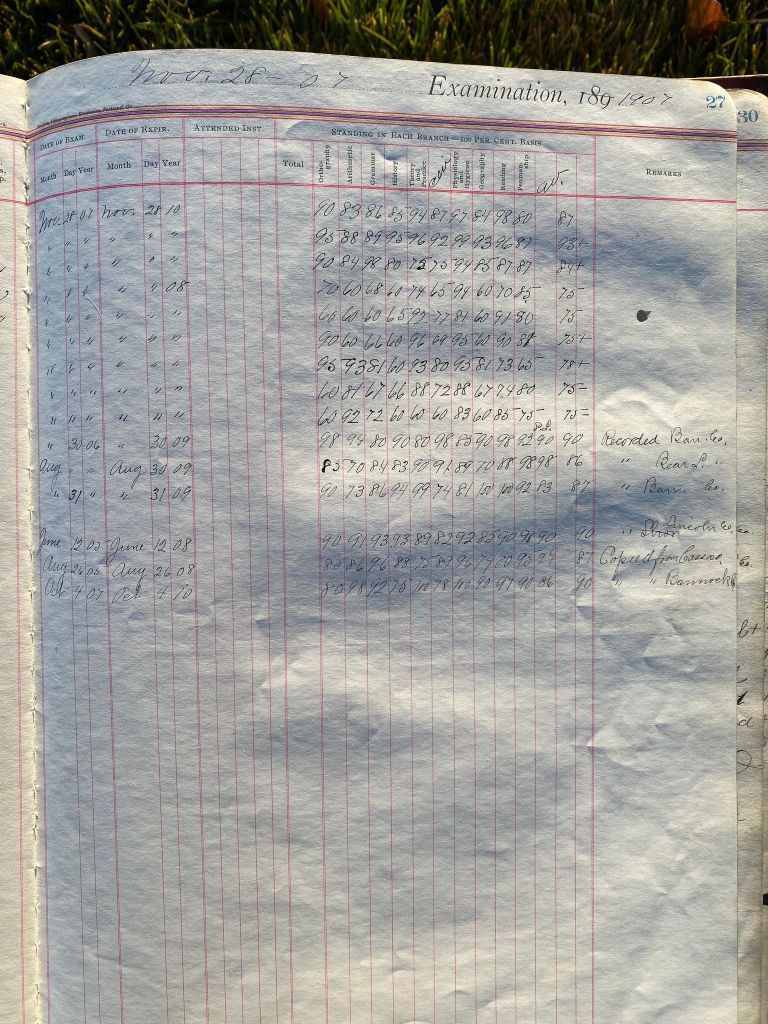 Nov. 28 - 07 Examination, 189 1907 27
30
DATE OF EXAM. DATE OF EXPIR. ATTENDED INST. STANDING IN EACH BRANCH—100 PER CENT. BASIS
Month Day Year Month Day Year Total Orthography Arithmetic Grammar History Theory and Practice Physiology and Hygiene Geography Reading Penmanship av. REMARKS
Nov. 28 07 Nov. 28 10 90 83 86 85 94 87 97 84 98 80 87
" " " " " " 95 88 89 95 96 92 99 93 96 87 93+
" " " " " " 90 84 98 80 75 75 94 85 87 87 84+
" " " " " 08 70 60 68 60 74 65 94 60 70 85 75-
" " " " " " 60 60 60 65 92 77 81 60 91 80 75
" " " " " " 90 60 66 60 96 69 95 60 90 81 75+
" " " " " " 95 93 81 60 93 80 95 81 73 65 78+
" " " " " " 60 81 67 66 88 72 88 67 74 80 75-
" " " " " " 60 92 72 60 60 60 83 60 85 75 75=
" 30 06 " 30 09 98 94 80 90 80 98 85 90 98 92 90 90 Recorded Bann. Co.
Aug " " Aug 30 09 85 70 84 83 90 91 89 70 88 98 98 86 " Bear L. "
" 31 " " 31 09 90 73 86 94 99 74 81 100 100 92 83 87 " Bann. Co.
June 12 05 June 12 08 90 91 93 93 89 82 92 85 90 96 90 90 " Lincoln Co.
Aug 26 05 Aug 26 08 85 86 96 88 75 89 96 79 80 95 94 87 Copied from Cassia Co.
Oct 4 07 Oct 4 10 80 98 92 75 100 78 100 90 97 90 86 90 " " Bannock